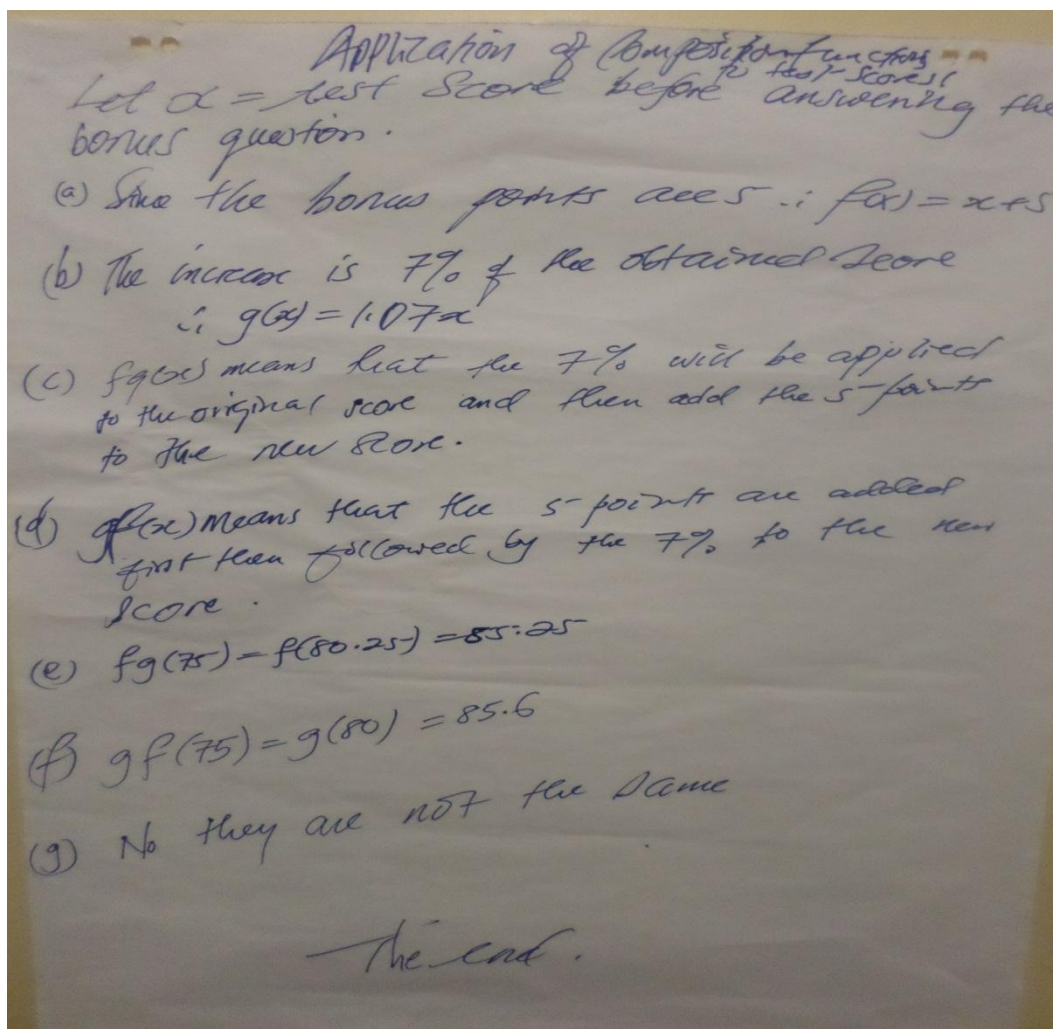 Application of Composition functions
to test scores
Let x = test Score before answering the
bonus question.
(a) Since the bonus points are 5 ∴ f(x) = x+5
(b) The increase is 7% of the obtained score
∴ g(x) = 1.07x
(c) fg(x) means that the 7% will be applied
to the original score and then add the 5-points
to the new score.
(d) gf(x) means that the 5-points are added
first then followed by the 7% to the new
score.
(e) fg(75) = f(80.25) = 85.25
(f) gf(75) = g(80) = 85.6
(g) No they are not the same
The end.